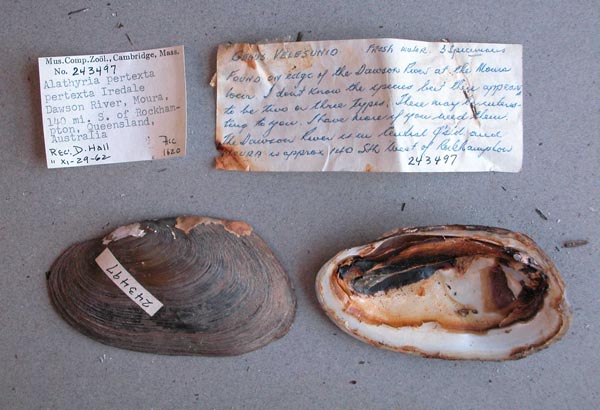 Mus. Comp. Zoöl., Cambridge, Mass.
No. 243497
Alathyria pertexta
pertexta Iredale
Dawson River, Moura,
140 mi. S. of Rockham-
pton, Queensland,
Australia
Rev. D. Hall
" XI-29-62
1620
Genus VELESUNIO Fresh water. 3 Specimens
Found on edge of the Dawson River at the Moura
I don't know the species but they appear
to be two or three types. These may be interes-
ting to you. I have more if you need them
The Dawson River is in Central Q'ld and
MOURA is approx 140 Sth West of Rockhampton
243497
243497